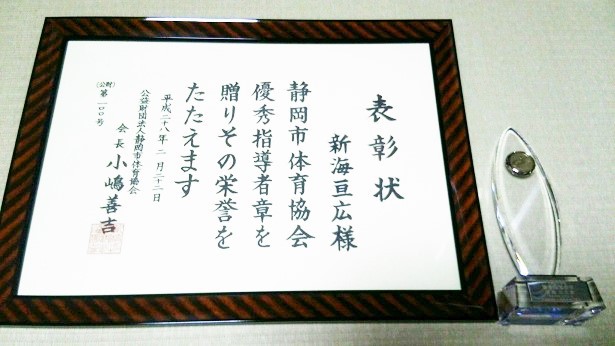 表彰状
新海亘広様
静岡市体育協会
優秀指導者章を
贈りその栄誉を
たたえます
平成二十八年二月二十二日
公益財団法人静岡市体育協会
会長 小嶋善吉
(公財)第一〇〇号